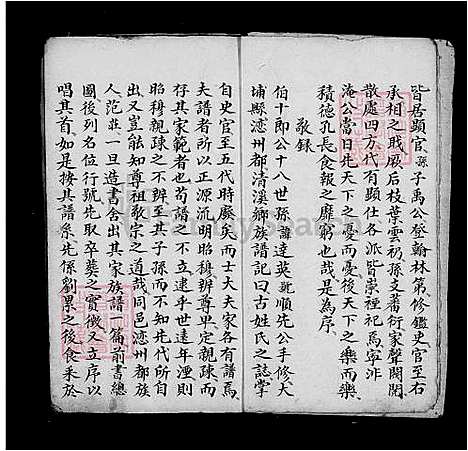 皆居顯官孫子禹公登翰林第修鑑史官至右
承相之職厥后枝葉雲礽孫支蕃衍家聲閥閱
散處四方代有顯仕各派皆崇裡祀焉寧非
淹公當日先天下之憂而憂後天下之樂而樂
積德孔長食報之靡窮也哉是為序
敬錄
伯十郎公十八世孫諱達英號順先公手修大
埔縣湱州都清溪鄉族譜記曰古姓氏之誌掌
自史官至五代時廢矣而士大夫家各有譜焉
夫譜者所以正源流明昭穆辨尊卑定親疎而
存其家範者也苟譜一不立逮乎世遠年湮則
昭穆親疎之不辨至其子孫而不知先代所自
出又豈能知尊祖敬宗之道哉同邑湱州都族
人范莊一旦造書舍出其家族譜一篇前書總
圖後列名位行號先取卒葬之實徵又立序以
唱其首如是按其譜系先係劉累之後食釆於